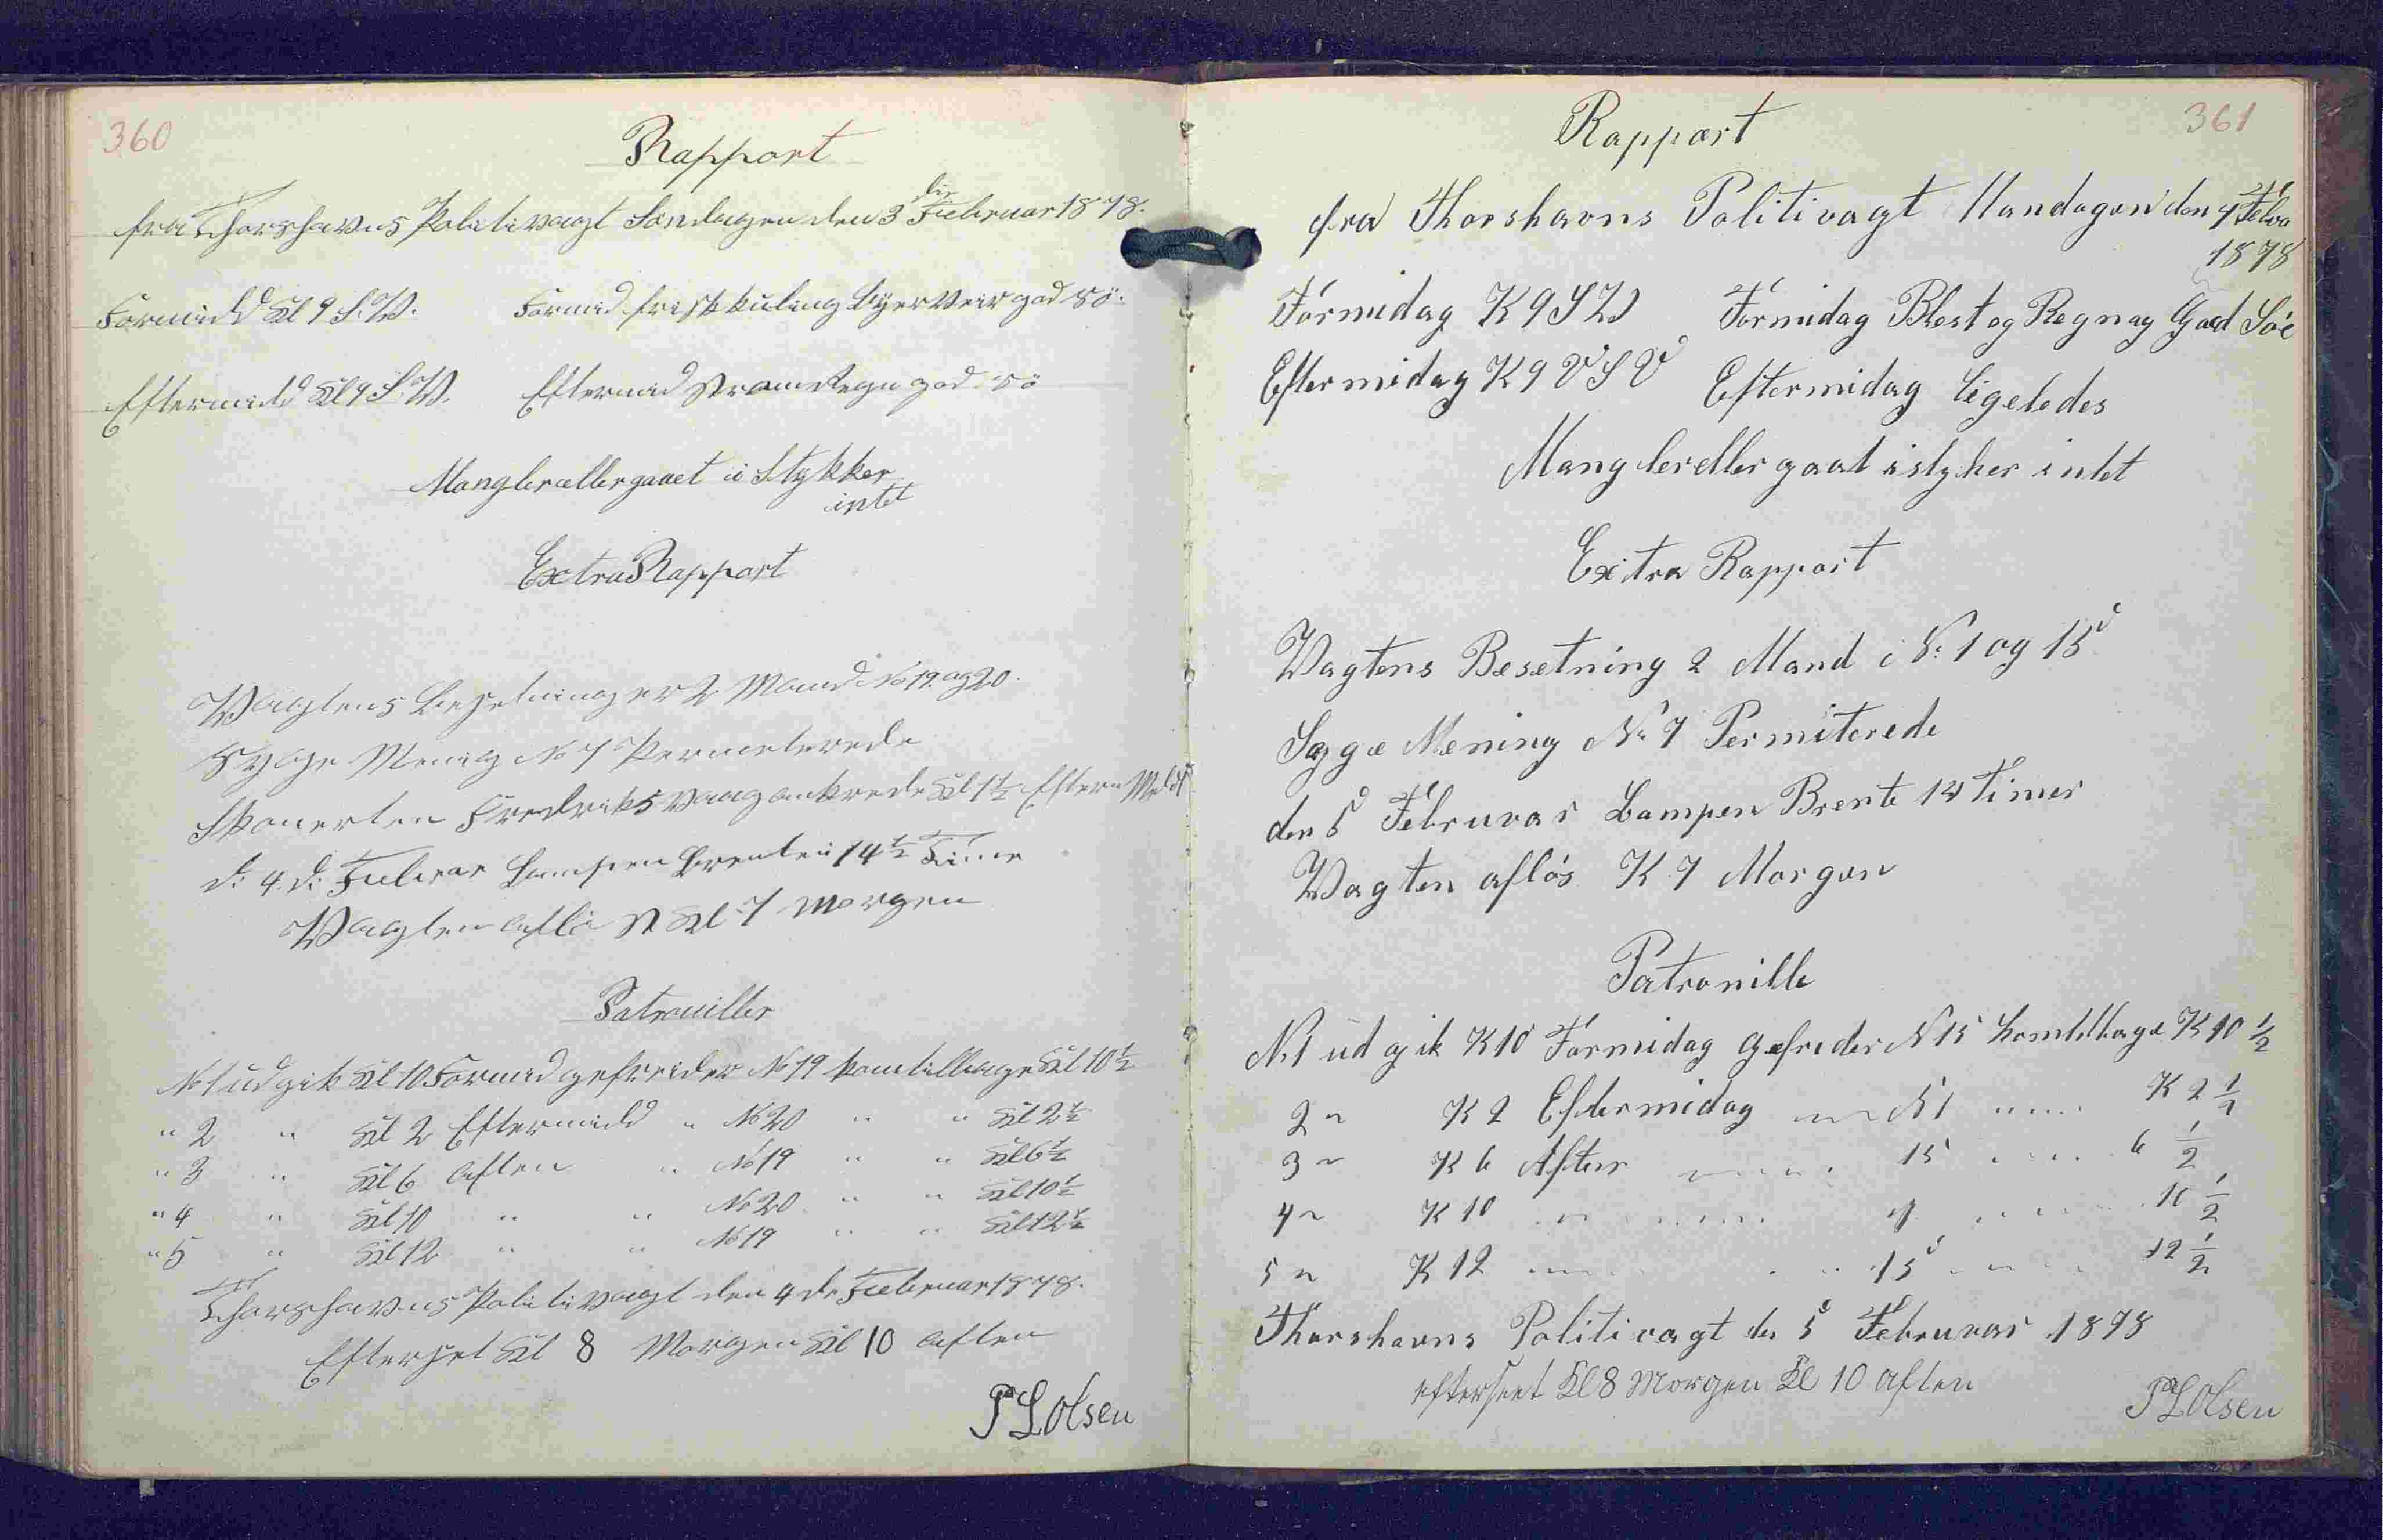 360
Rapport
fra Thorshavns Politivagt Søndagen den 3 die Februar 1878.
Formidd Kl 9 S.W. Formid frisk kuling byer Veir god Sö.
Eftermidd Kl 9 S.W. Eftermid Regn god Sö
Mangler eller gaaet i Stykker
intet
Extra Rapport
Vagtens Besetning er 2 Mand No 19. og 20.
Syge Menig No 7 Permeterede
Skonerten Fredriksvaag ankrede Kl 1½ Efterm
d: 4. d: Februar Lampen brente i 14½ Time
Vagten Kl 7 Morgen
Patrouiller
No 1 udgik Kl 10 Formid gefreider No 19 kom tilbage Kl 10½
" 2 " Kl 2 Eftermidd " No 20 " " Kl 2½
" 3 " Kl 6 Aften " No 19 " " Kl 6½
" 4 " Kl 10 " " No 20 " " Kl 10½
" 5 " Kl 12 " " No 19 " " Kl 12½
Thorshavns Politivagt den 4 de Februar 1878.
Efterset Kl 8 Morgen Kl 10 Aften
P L Olsen
361
Rappart
fra Thorshavns Politivagt Mandagen den 4 Febra
1878
Formidag K 9 S V Formidag Blest og Regnag God Söe
Eftermidag K 9 V S V Eftermidag ligeledes
Mangler eller gaat i styker intet
Extra Rapport
Vagtens Besetning 2 Mand i N: 1 og 15
Syge Mening No 7 Permiterede
den 5 Februvar Lampen Brente 14 Timer
Vagten aflös K 7 Morgen
Patronille
N. 1 ud gik K 10 Formidag gefreder N 15 komtilbage K 10 ½
2 " K 2 Eftermidag " N 1 " K 2 ½
3 " K 6 Aften " 15 " 6 ½
4 " K 10 " 1 " 10 ½
5 " K 12 " 15 " 12 ½
Thorshavns Politivagt den 5 Februvar 1878
efterseet Kl 8 Morgen Kl 10 Aften
P L Olsen